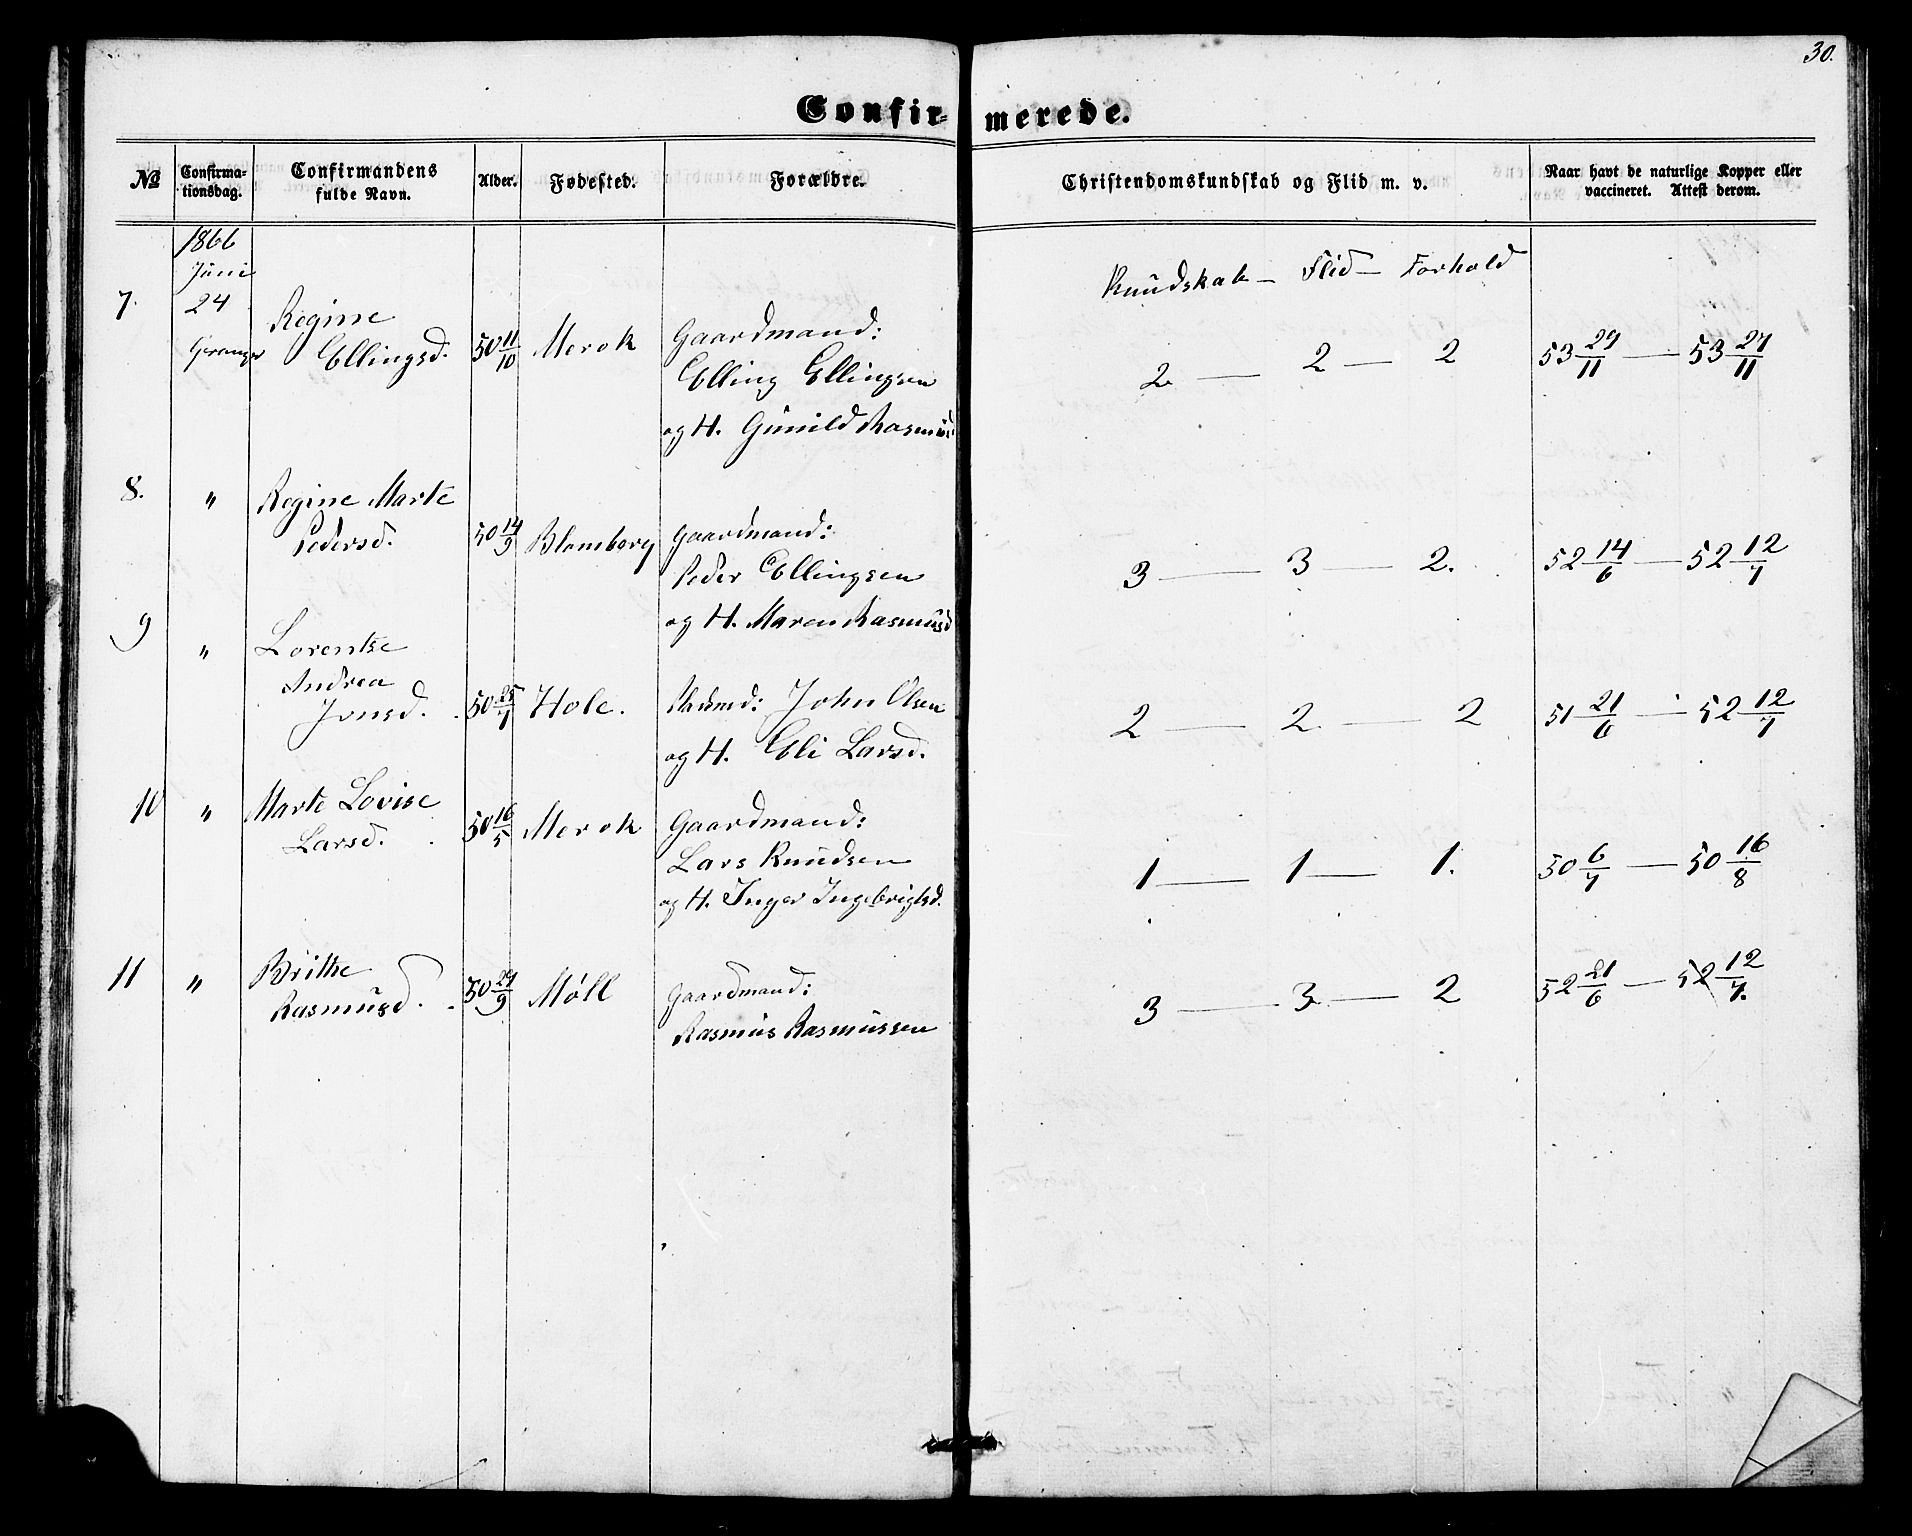 30.
Confirmerede.
No Confirmationsdag. Confirmandens fulde Navn. Alder. Fødested. Forældre. Christendomskundskab og Flid m. v. Naar havt de naturlige Kopper eller vaccineret. Attest derom.
1866
Juni
24
Geranger
Kundskab – Flid – Forhold
7. Regine 50 11/10 Merok Gaardmand: 2 — 2 — 2 53 27/11 — 53 27/11
Ellingsd. Elling Ellingsen
og H. Gunild Rasmusd
8. " Regine Marte
Pedersd. 50 14/9 Blomberg Gaardmand: 3 — 3 — 2. 52 14/6 — 52 12/7
Peder Ellingsen
og H. Maren Rasmusd
9 " Lorentse
Andrea
Jonsd. 50 25/7 Hole. John Olsen 2 — 2 — 2 51 21/6 — 52 12/7
og H. Eli Larsd.
10 " Marte Lovise 50 16/5 Merok Gaardmand: 1 — 1 — 1. 50 6/7 — 50 16/8
Larsd. Lars Knudsen
og H. Inger Ingebrigtsd.
11 " Brithe 50 27/9 Møll Gaardmand: 3 — 3 — 2 52 21/6 — 52 12/7.
Rasmusd. Rasmus Rasmussen